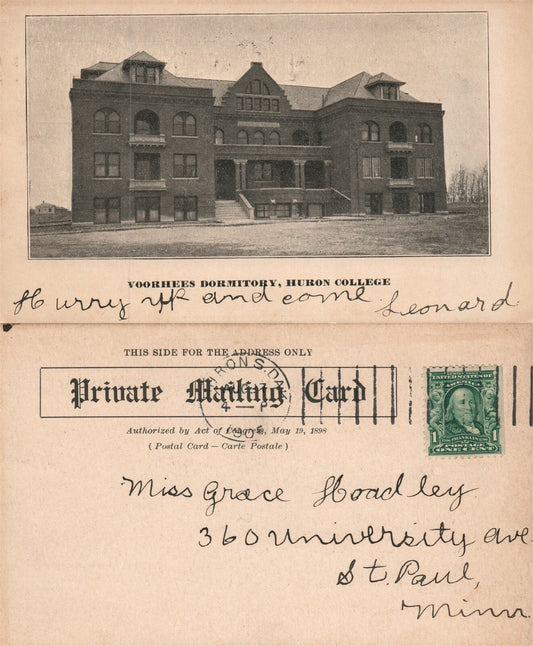 VOORHEES DORMITORY, HURON COLLEGE
Hurry up and come Leonard
THIS SIDE FOR THE ADDRESS ONLY
Private Mailing Card
Authorized by Act of Congress, May 19, 1898
(Postal Card — Carte Postale)
HURON S. DAK.
4 — P
UNITED STATES OF
AMERICA
FRANKLIN
1 1
POSTAGE
ONE CENT
Miss Grace Hoadley
360 University Ave
St. Paul,
Minn